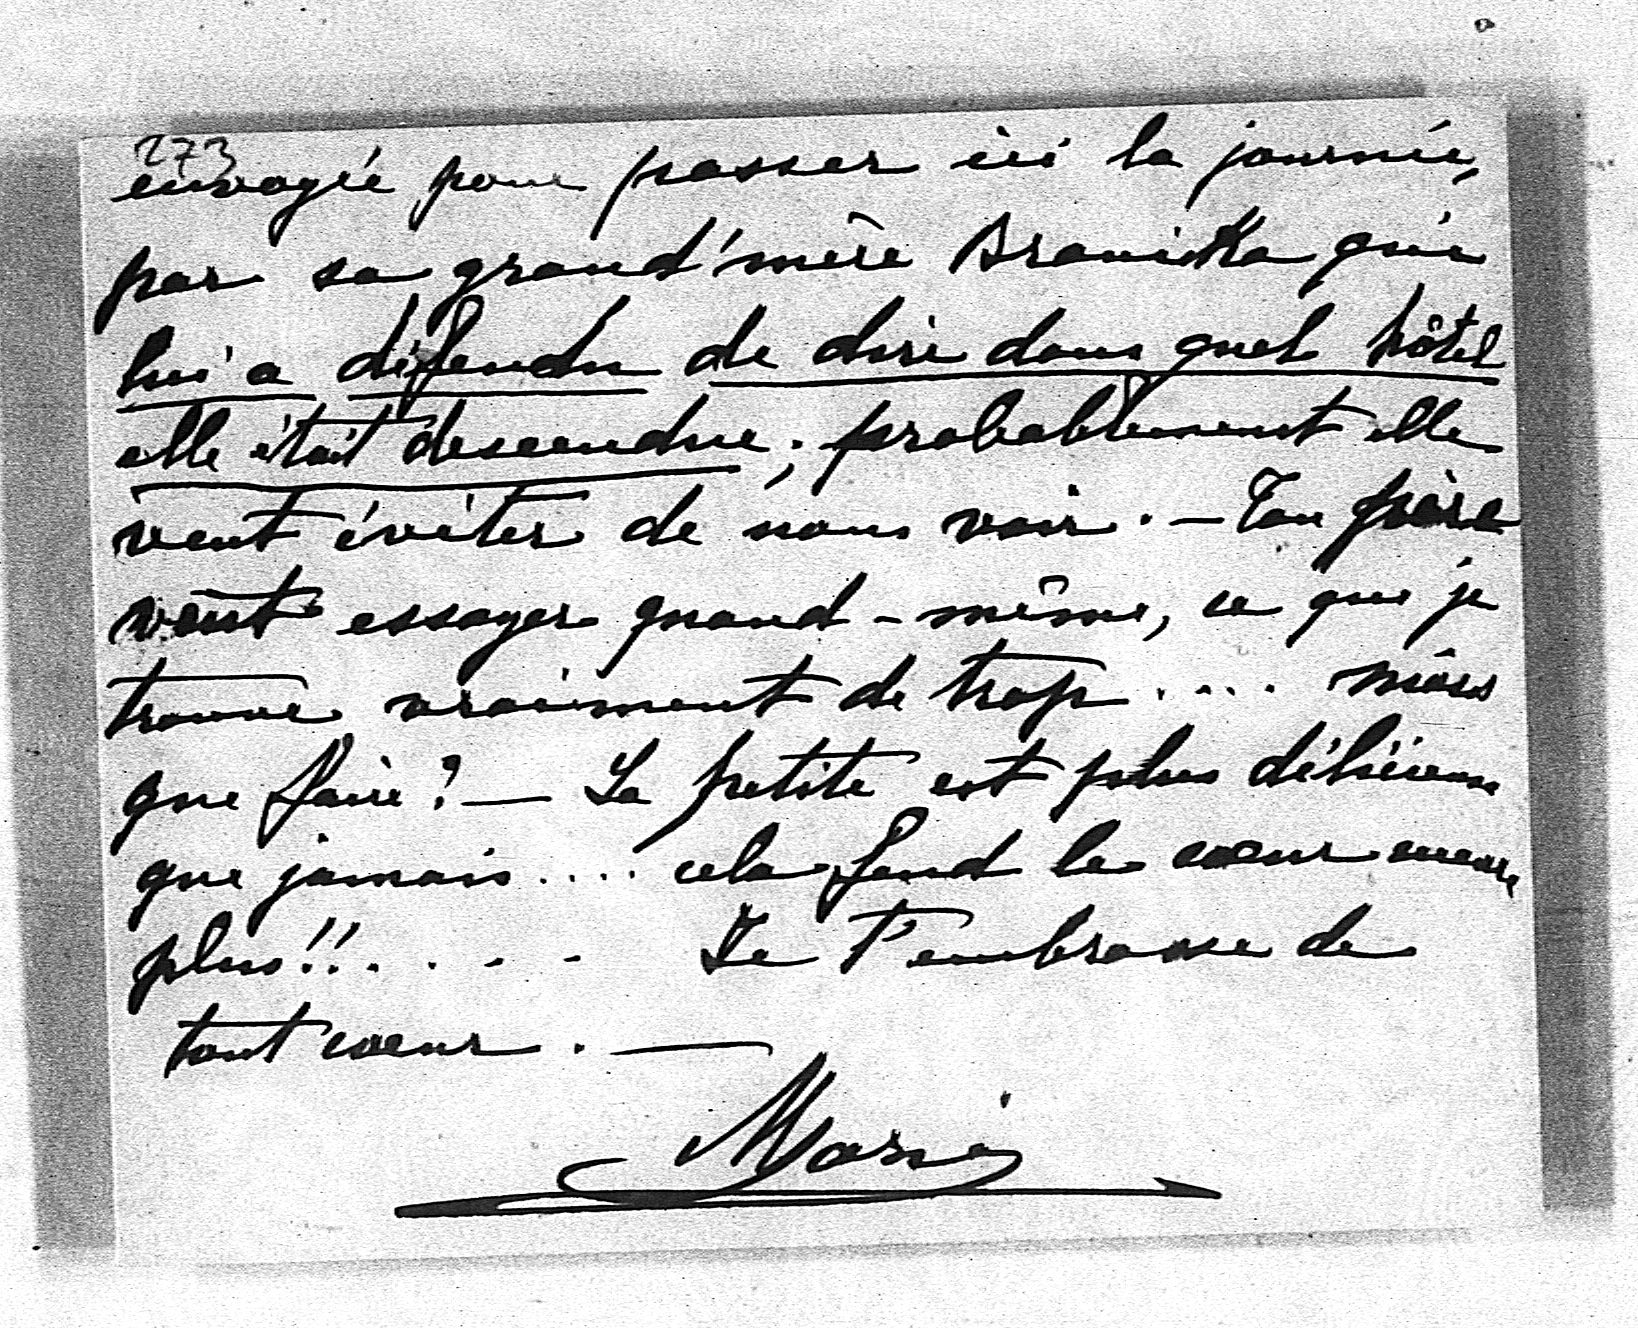 273
envoyée pour passer ici la journée,
par sa grand'mère Branicka qui
lui a défendu de dire dans quel hôtel
elle était descendue; probablement elle
veut éviter de nous voir. — Ton père
veut essayer quand-même, ce que je
trouve vraiment de trop .... mais
que faire? — La petite est plus délicieuse
que jamais .... cela fend le cœur encore
plus!! . . . . Je t'embrasse de
tout cœur. —
Marie